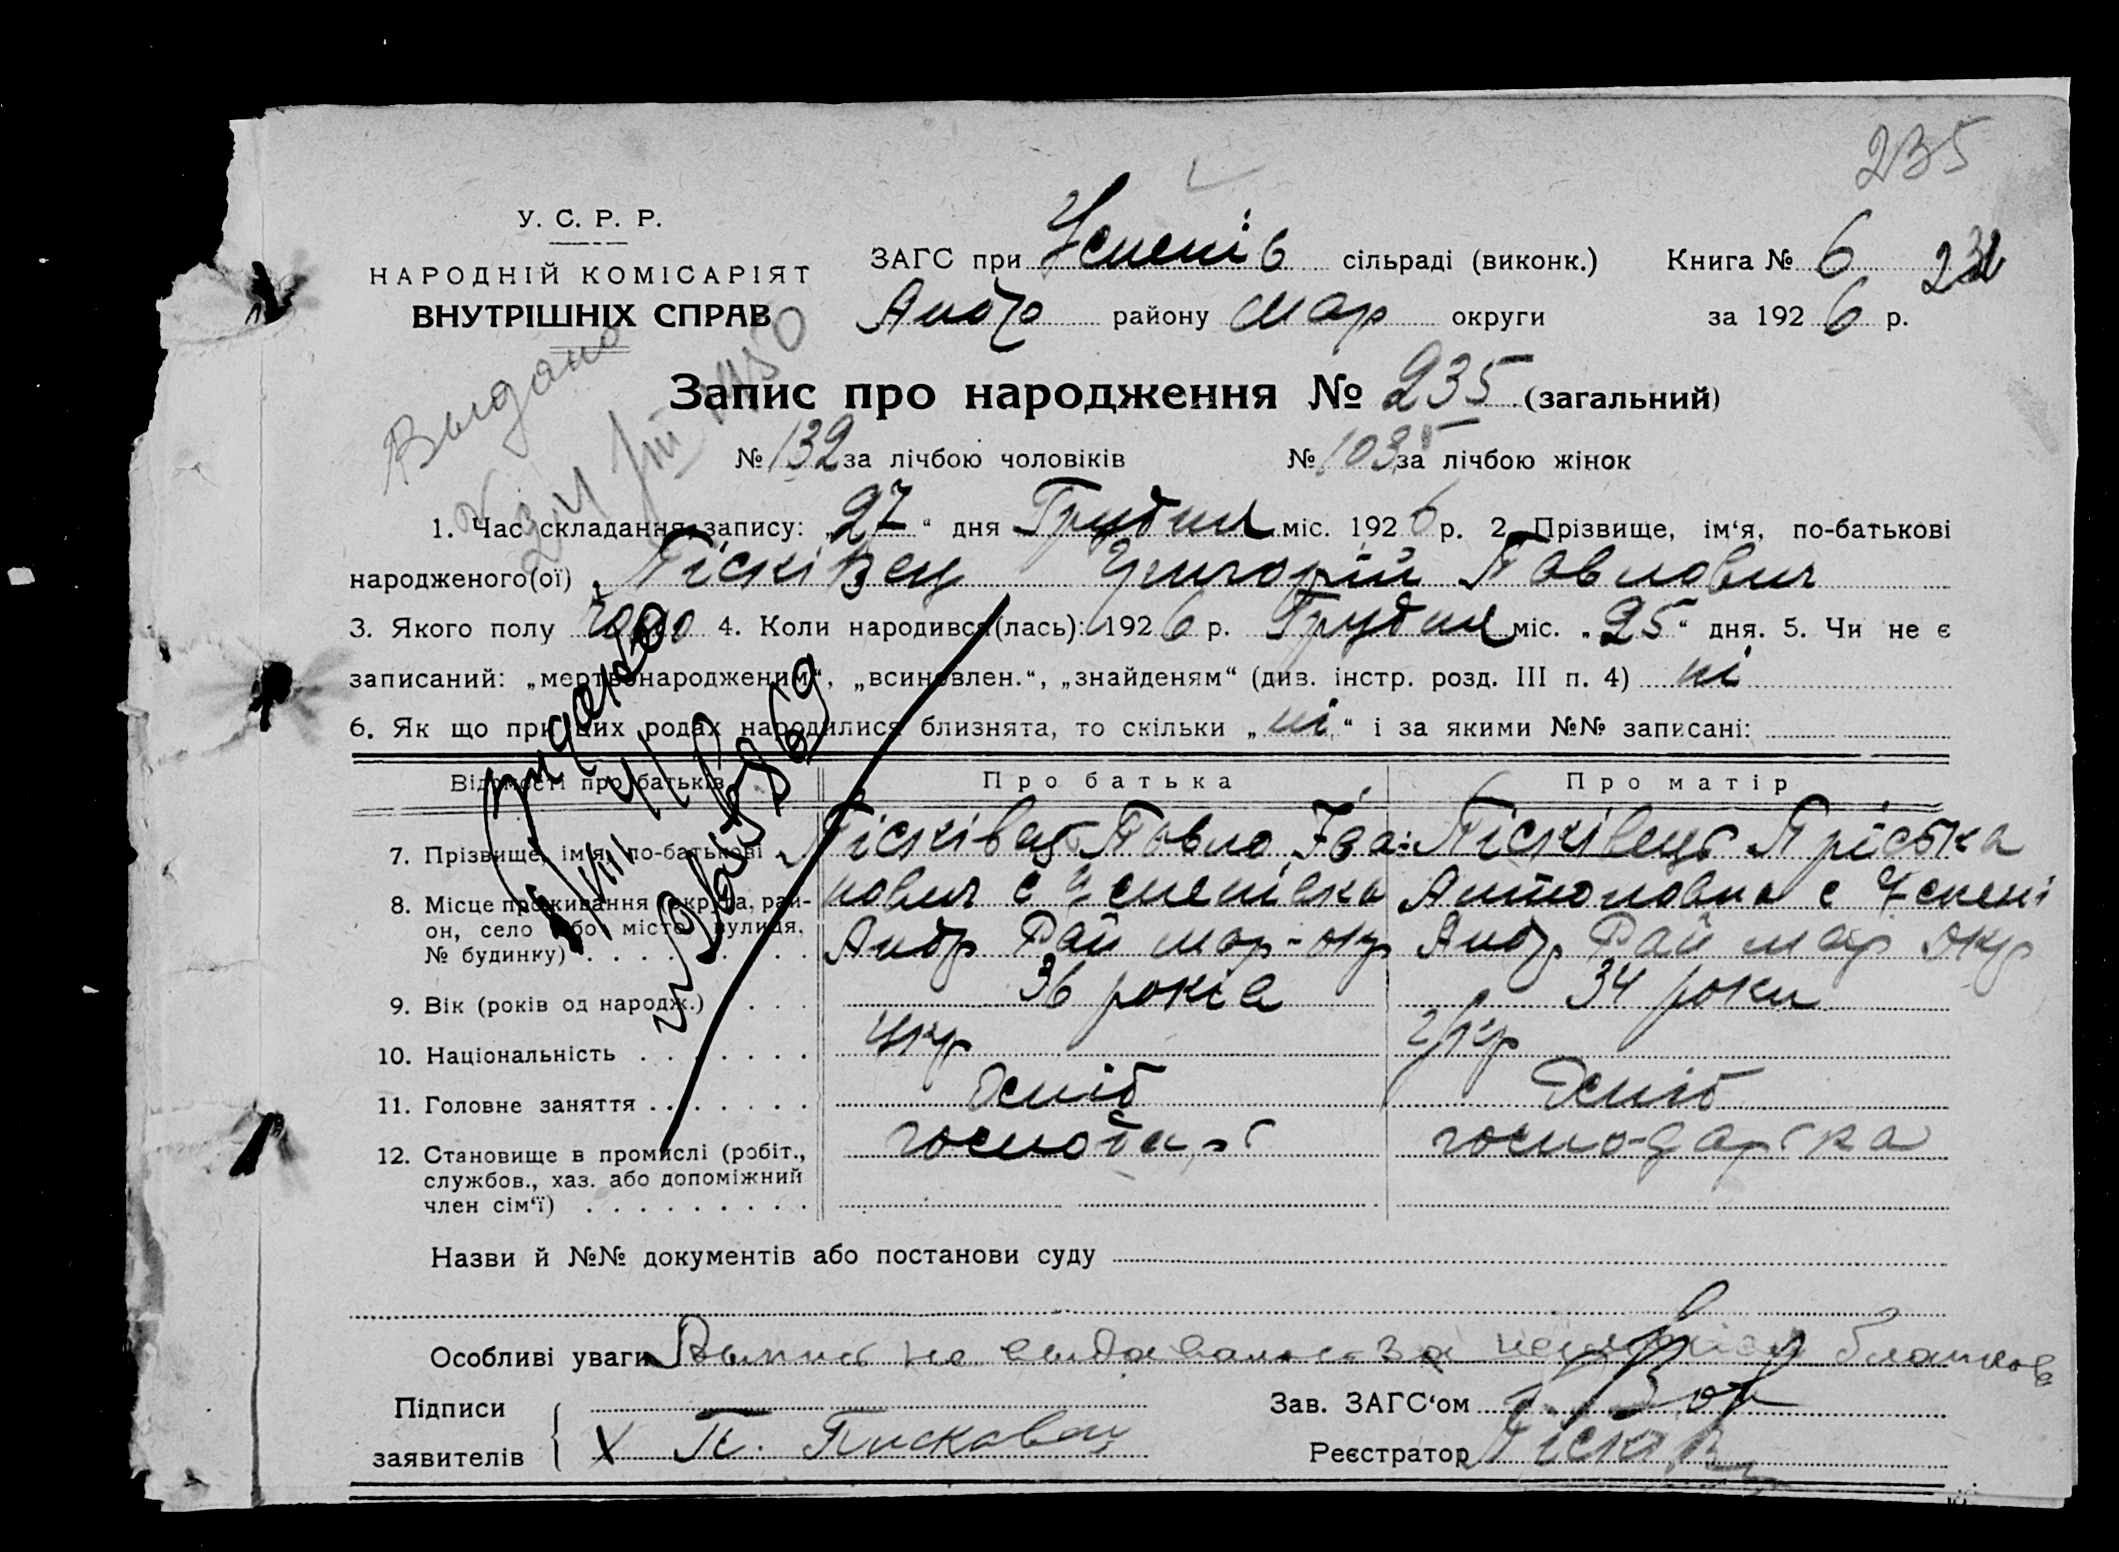 235
У. С. Р. Р.
НАРОДНІЙ КОМІСАРІЯТ
ВНУТРІШНІХ СПРАВ
ЗАГС при Успенів сільраді (виконк.) Книга № 6
Андр району Мар округи за 1926 р.
Выдано
Запис про народження № 235 (загальний)
№ 132 за лічбою чоловіків № 103 за лічбою жінок
1. Час складання запису: „27“ дня Грудня міс. 1926 р. 2. Прізвище, ім‘я, по-батькові
народженого(ої) Пісківец Григорій Павлович
3. Якого полу 4. Коли народився(лась): 1926 р. Грудня міс. „25“ дня. 5. Чи не є
записаний: „мертвонародженим“, „всиновлен.“, „знайденям“ (див. інстр. розд. III п. 4) ні
6. Як що при цих родах народилися близнята, то скільки „ні“ і за якими №№ записані:
Відомості про батьків Про батька Про матір
7. Прізвище, ім‘я, по-батькові Пісківец Павло Іва- Пісківець Пріська
8. Місце проживання (округа, рай- нович с Успенівка Антоновна с Успені
он, село або місто, вулиця, Андр Рай мар-окр Андр Рай мар окр
№ будинку)
9. Вік (років од народж.) 36 років 34 роки
10. Національність укр укр
11. Головне заняття Хліб Хліб
12. Становище в промислі (робіт., господарь господарька
службов., хаз. або допоміжний
член сім‘ї)
Назви й №№ документів або постанови суду
Особливі уваги Выпись не выдавалась за бланков
Підписи Зав. ЗАГС‘ом
заявителів Х П. Писковец Реєстратор